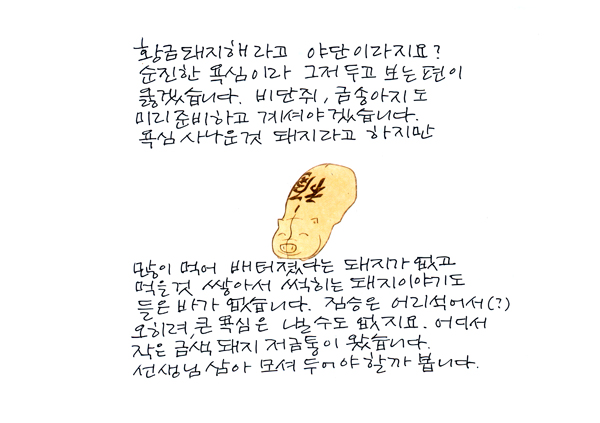 황금돼지해라고 야단이라지요?
순진한 욕심이라 그저 두고 보는 편이
옳겠습니다. 비단쥐, 금송아지도
미리 준비하고 계셔야겠습니다.
욕심 사나운 것 돼지라고 하지만
福
많이 먹어 배터졌다는 돼지가 없고
먹을 것 쌓아서 썩히는 돼지이야기도
들은 바가 없습니다. 짐승은 어리석어서(?)
오히려, 큰 욕심은 낼 수도 없지요. 어디서
작은 금색 돼지 저금통이 왔습니다.
선생님 삼아 모셔 두어야 할까 봅니다.